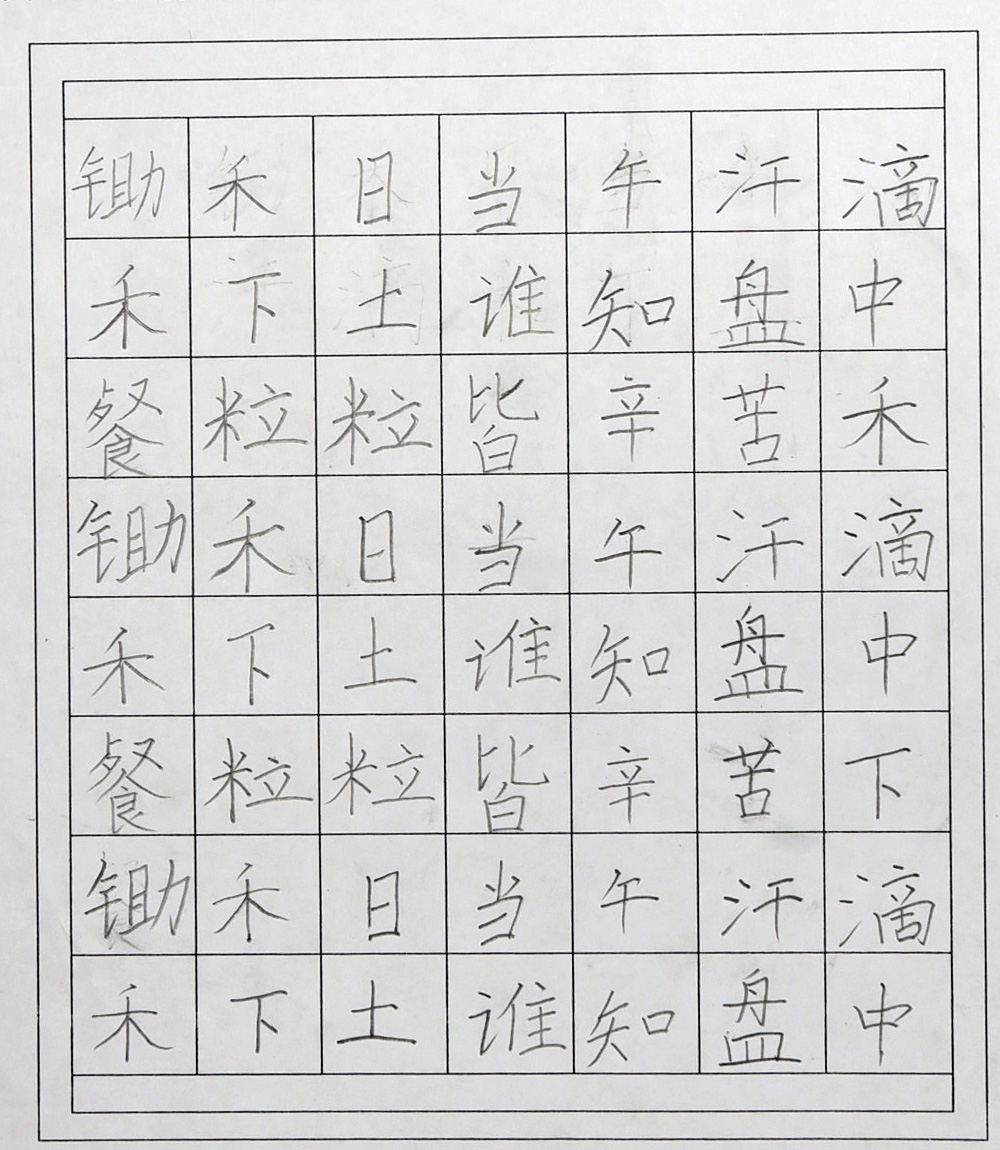 锄禾日当午汗滴
禾下土谁知盘中
餐粒粒皆辛苦禾
锄禾日当午汗滴
禾下土谁知盘中
餐粒粒皆辛苦下
锄禾日当午汗滴
禾下土谁知盘中